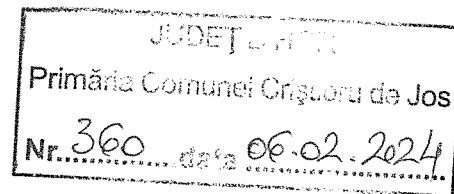 JUDEȚ
Primăria Comunei Crișcoru de Jos
Nr. 360 data 06.02.2024